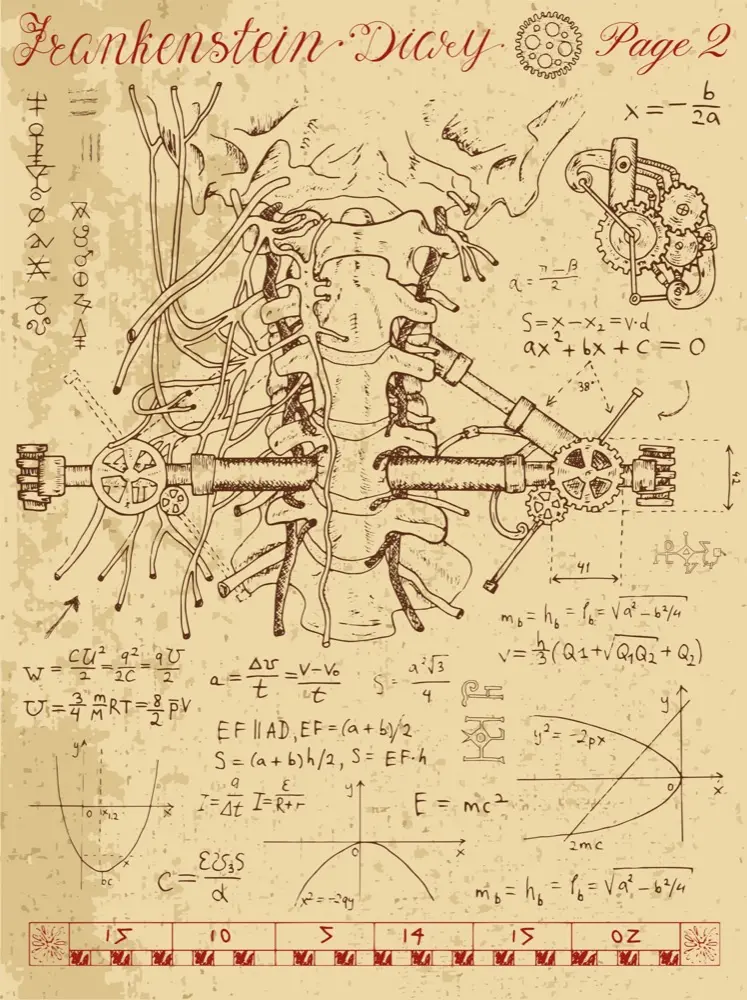 Frankenstein Diary Page 2
x = - b/2a
a = π-β/2
S=x-x₂=v·d
ax²+bx+c=0
38°
42
41
m_b = h_b = l_b = √a²-b²/4
v = h/3(Q1+√Q₁Q₂+Q₂)
W = CU²/2 = q²/2C = qU/2
a = Δv/t = v-v₀/t
S = a²√3/4
U = 3/4 m/M RT = 8/2 p̄V
EF ∥ AD, EF = (a+b)/2
S = (a+b)h/2, S = EF·h
I = q/Δt I = Ɛ/R+r
E = mc²
y² = -2px
y
x
0
2mc
y
0
x₁,₂
x
bc
y
0
x
x² = -2qy
m_b = h_b = l_b = √a²-b²/4
15 10 5 14 15 02